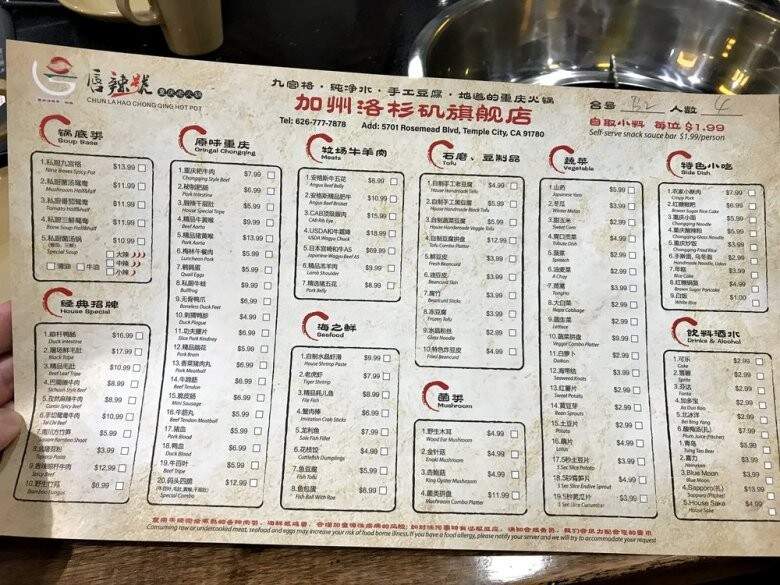 唇辣號
重庆老火锅
CHUN LA HAO CHONG QING HOT POT
九宫格·纯净水·手工豆腐·地道的重庆火锅
加州洛杉矶旗舰店
Tel: 626-777-7878 Add: 5701 Rosemead Blvd, Temple City, CA 91780
台号 B2 人数 4
自取小料 每位 $1.99
Self-serve snack sauce bar $1.99/person
锅底类
Soup Base
1.私厨九宫格 $13.99
Nine Boxes Spicy Pot
2.私厨菌汤鸳鸯 $11.99
Mushroom Half&Half
3.私厨番茄鸳鸯 $11.99
Tomato Half&Half
4.私厨三鲜鸳鸯 $11.99
Bone Soup Half&Half
5.私厨菌汤锅 $10.99
Special Soup
大辣
中辣
小辣
清油 牛油
经典招牌
House Special
1.顺杆鸭肠 $16.99
Duck Intestine
2.屠场鲜毛肚 $17.99
Black Tripe
3.精品毛肚 $10.99
Beef Leaf Tripe
4.巴蜀嫩牛肉 $8.99
Sichuan Style Beef
5.孜然麻辣牛肉 $8.99
Cumin Spicy Beef
6.手切鸳鸯牛肉 $10.99
Tai Chi Beef
7.南川方竹笋 $5.99
Square Bamboo Shoot
$3.99
Tapioca Pasta
$12.99
Spicy Beef
10.野生竹荪 $8.99
Bamboo Fungus
原味重庆
Oringal Chongqing
1.重庆肥牛肉 $7.99
Chongqing Style Beef
2.秘制肥肠 $6.99
Pork Intestine
3.唇辣千层肚 $5.99
House Special Tripe
4.精品牛黄喉 $9.99
Beef Aorta
5.精品猪黄喉 $13.99
Pork Aorta
6.梅林午餐肉 $5.99
Luncheon Pork
7.鹌鹑蛋 $5.99
Quail Eggs
8.私厨牛蛙 $9.99
Bullfrog
9.无骨鸭爪 $6.99
Boneless Duck Feet
10.刺猬鸭郡 $4.99
Duck Piegue
11.功夫腰片 $6.99
Slice Pork Kindney
12.精品脑花 $5.99
Pork Brain
13.香菜猪肉丸 $5.99
Pork Meatball
14.牛蹄筋 $6.99
Beef Tendon
15.脆皮肠 $5.99
Mini Sausage
16.牛筋丸 $5.99
Beef Tendon Meatball
17.猪血 $5.99
Pork Blood
18.鸭血 $6.99
Duck Blood
19.牛百叶 $5.99
Beef Tripe
20.码头四喜 $12.99
Special Combo
牧场牛羊肉
Meats
1.安格斯牛五花 $8.99
Angus Beef Belly
2.安格斯精品肥牛 $10.99
Angus Beef Brisket
3.CAB顶级眼肉 $15.99
CAB Rib Eye
4.USDA和牛雪花 $18.99
USDA Wagyu Chuck
5.日本宫崎和牛A5 $69.99
Japanese Wagyu Beef A5
6.精品羔羊肉 $9.99
Lamb Shoulder
7.精选猪五花 $8.99
Pork Belly
海之鲜
Seafood
1.自制水晶虾滑 $9.99
House Shrimp Paste
2.老虎虾 $7.99
Tiger Shrimp
3.精品耗儿鱼 $8.99
File Fish
4.蟹肉棒 $5.99
Imitation Crab Sticks
5.龙利鱼 $7.99
Sole Fish Fillet
6.花枝饺 $4.99
Cuttlefish Dumplings
7.鱼豆腐 $5.99
Fish Tofu
8.鱼包蛋 $6.99
Fish Ball With Roe
石磨、豆制品
Tofu
1.自制手工老豆腐 $4.99
House Handmade Old Tofu
2.自制手工黑豆腐 $5.99
House Handmade Black Tofu
3.自制蔬菜豆腐 $5.99
House Handemade Veggie Tofu
4.自制豆腐拼盘 $12.99
Tofu Combo Platter
5.鲜豆皮 $3.99
Fresh Beancurd
6.油豆皮 $3.99
Beancurd Skin
7.腐竹 $3.99
Beancurd Sticks
8.冻豆腐 $3.99
Frozen Tofu
9.水晶粉丝 $2.99
Glass Noodle
10.特色炸豆皮 $4.99
Fried Beancurd
菌类
Mushroom
1.野生木耳 $4.99
Wood Ear Mushroom
2.金针菇 $4.99
Enoki Mushroom
3.杏鲍菇 $4.99
King Oyster Mushroom
4.菌类拼盘 $11.99
Mushroom Combo Platter
蔬菜
Vegetable
1.山药 $5.99
Japanese Yam
2.冬瓜 $3.99
Winter Melon
3.甜玉米 $2.99
Sweet Corn
4.爽口贡菜 $4.99
Tribute Dish
5.菠菜 $2.99
Spinach
6.油麦菜 $2.99
A Choy
7.茼蒿 $3.99
TongHao
8.大白菜 $2.99
Napa Cabbage
9.圆生菜 $2.99
Lettuce
10.蔬菜拼盘 $7.99
Veggie Combo Platter
11.白萝卜 $2.99
Daikon
12.海带结 $3.99
Seaweed Knots
13.红薯片 $2.99
Sweet Potatos
14.黄豆芽 $2.99
Bean Sprouts
15.土豆片 $2.99
Potato
16.藕片 $3.99
Lotus
17.5秒土豆片 $3.99
5 Sec Slice Potato
18.5秒莴笋片 $3.99
5 Sec Slice Endive Sprout
19.5秒黄瓜片 $3.99
5 Sec Slice Cucumber
特色小吃
Side Dish
1.农家小酥肉 $7.99
Crispy Pork
2.红糖糍粑 $6.99
Brown Sugar Rice Cake
3.重庆小面 $5.99
Chongqing Noodle
4.重庆酸辣粉 $5.99
Chongqing Glass Noodle
5.重庆炒饭 $6.99
Chongqing Fried Rice
$3.99
Handmade Noodle, Udon
7.年糕 $3.99
Rice Cake
8.红糖锅盔 $5.99
Brown Sugar Pancake
9.白饭 $1.00
White Rice
饮料酒水
Drinks & Alcohol
1.可乐 $2.99
Coke
2.雪碧 $2.99
Sprite
3.芬达 $2.99
Fanta
4.加多宝 $2.99
Jia Duo Bao
5.北冰洋 $2.99
Bei Bing Yang
6.酸梅汤(扎) $7.99
Plum Juice (Pitcher)
1.青岛 $3.99
Tsing Tao Beer
2.喜力 $3.99
Heineken
3.Blue Moon $3.99
Blue Moon
4.Sapporo(扎) $13.99
Sapporo (Pitcher)
5.House Sake $4.99
House Sake
Consuming raw or undercooked meat, seafood and eggs may increase your risk of food borne illness. If you have a food allergy, please notify your server and we will try to accommodate your request